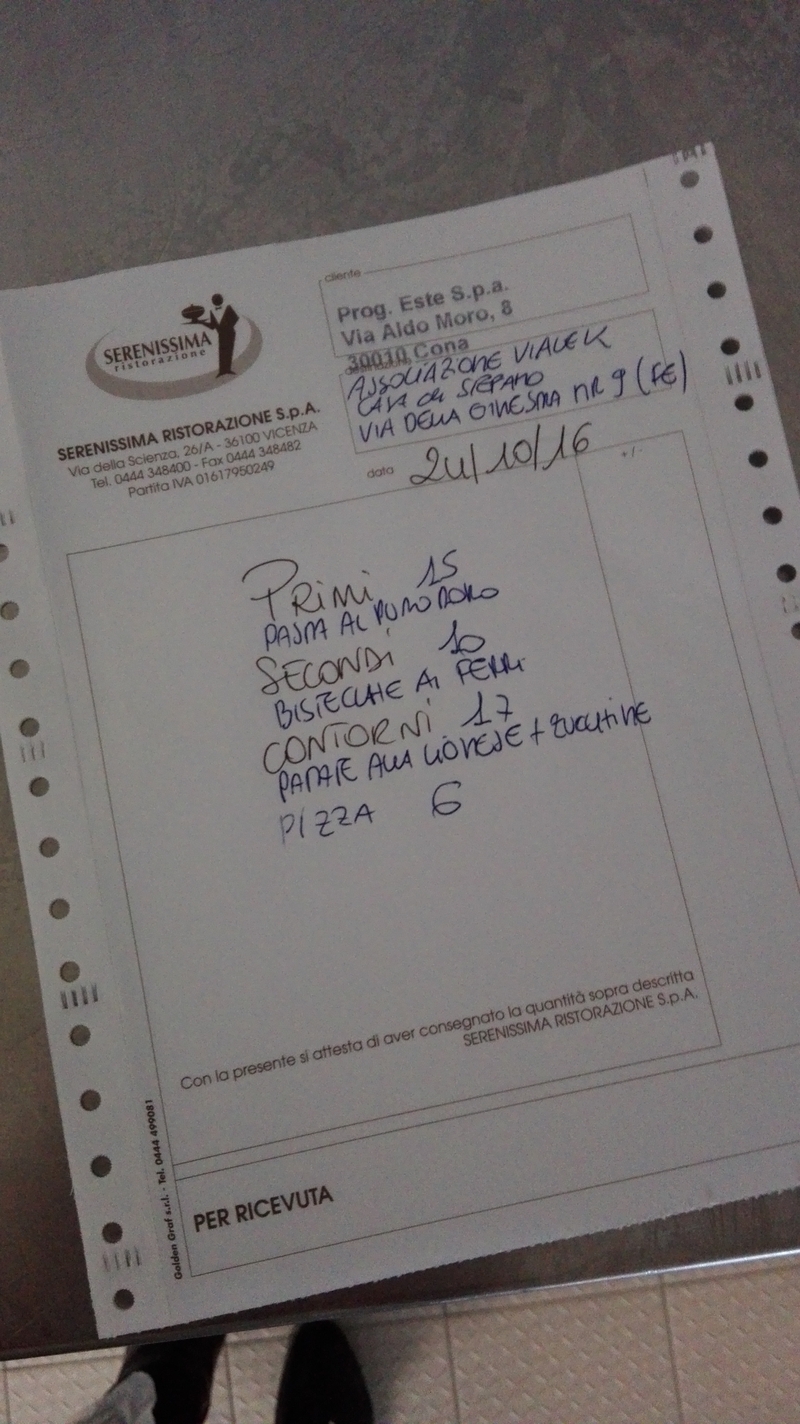 SERENISSIMA
ristorazione
SERENISSIMA RISTORAZIONE S.p.A.
Via della Scienza, 26/A - 36100 VICENZA
Tel. 0444 348400 - Fax 0444 348482
Partita IVA 01617950249
cliente
Prog. Este S.p.a.
Via Aldo Moro, 8
30010 Cona
ASSOCIAZIONE VIALE K
CASA DI STEFANO
VIA DELLA GINESTRA NR 9 (FE)
data 24/10/16
+/-
PRIMI 15
PASTA AL POMODORO
SECONDI 10
BISTECCHE AI FERRI
CONTORNI 17
PATATE ALLA LIONESE + ZUCCHINE
PIZZA 6
Con la presente si attesta di aver consegnato la quantità sopra descritta
SERENISSIMA RISTORAZIONE S.p.A.
PER RICEVUTA
Golden Graf s.r.l. - Tel. 0444 499081